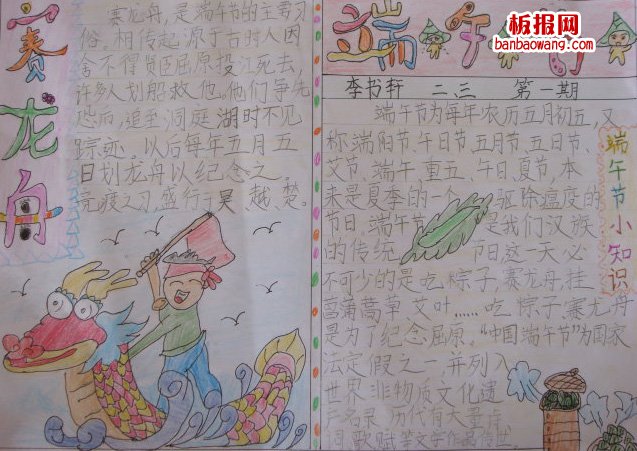 赛龙舟
赛龙舟,是端午节的主要习
俗。相传起源于古时人因
舍不得贤臣屈原投江死去,
许多人划船救他,他们争先
恐后,追至洞庭湖时不见
踪迹。以后每年五月五
日划龙舟以纪念之。
竞渡之习,盛行于吴、越、楚。
端午节
板报网
banbaowang.com
李书轩 二.三 第一期
端午节为每年农历五月初五,又
称端阳节、午日节、五月节、五日节、
艾节,端午,重五、午日,夏节,本
来是夏季的一个 驱除瘟疫的
节日,端午节 是我们汉族
的传统 节日,这一天必
不可少的是吃粽子,赛龙舟,挂
菖蒲蒿草,艾叶……吃粽子赛龙舟
是为了纪念屈原。“中国端午节”为国家
法定假之一,并列入
世界非物质文化遗
名录,历代有大量
词歌赋等文学作品传世。
端午节小知识